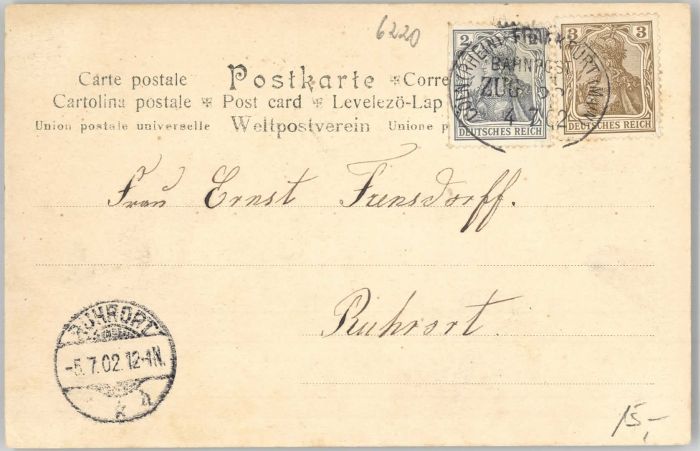 6220
2
3
DEUTSCHES REICH
DEUTSCHES REICH
CÖLN (RHEIN) FRANKFURT (MAIN)
BAHNPOST
ZUG
4 7 02
Carte postale Postkarte Corre
Cartolina postale Post card Levelezö-Lap
Union postale universelle Weltpostverein Unione p
Frau Ernst Frensdorff.
Ruhrort.
RUHRORT
-5.7.02.12-1N.
15,-